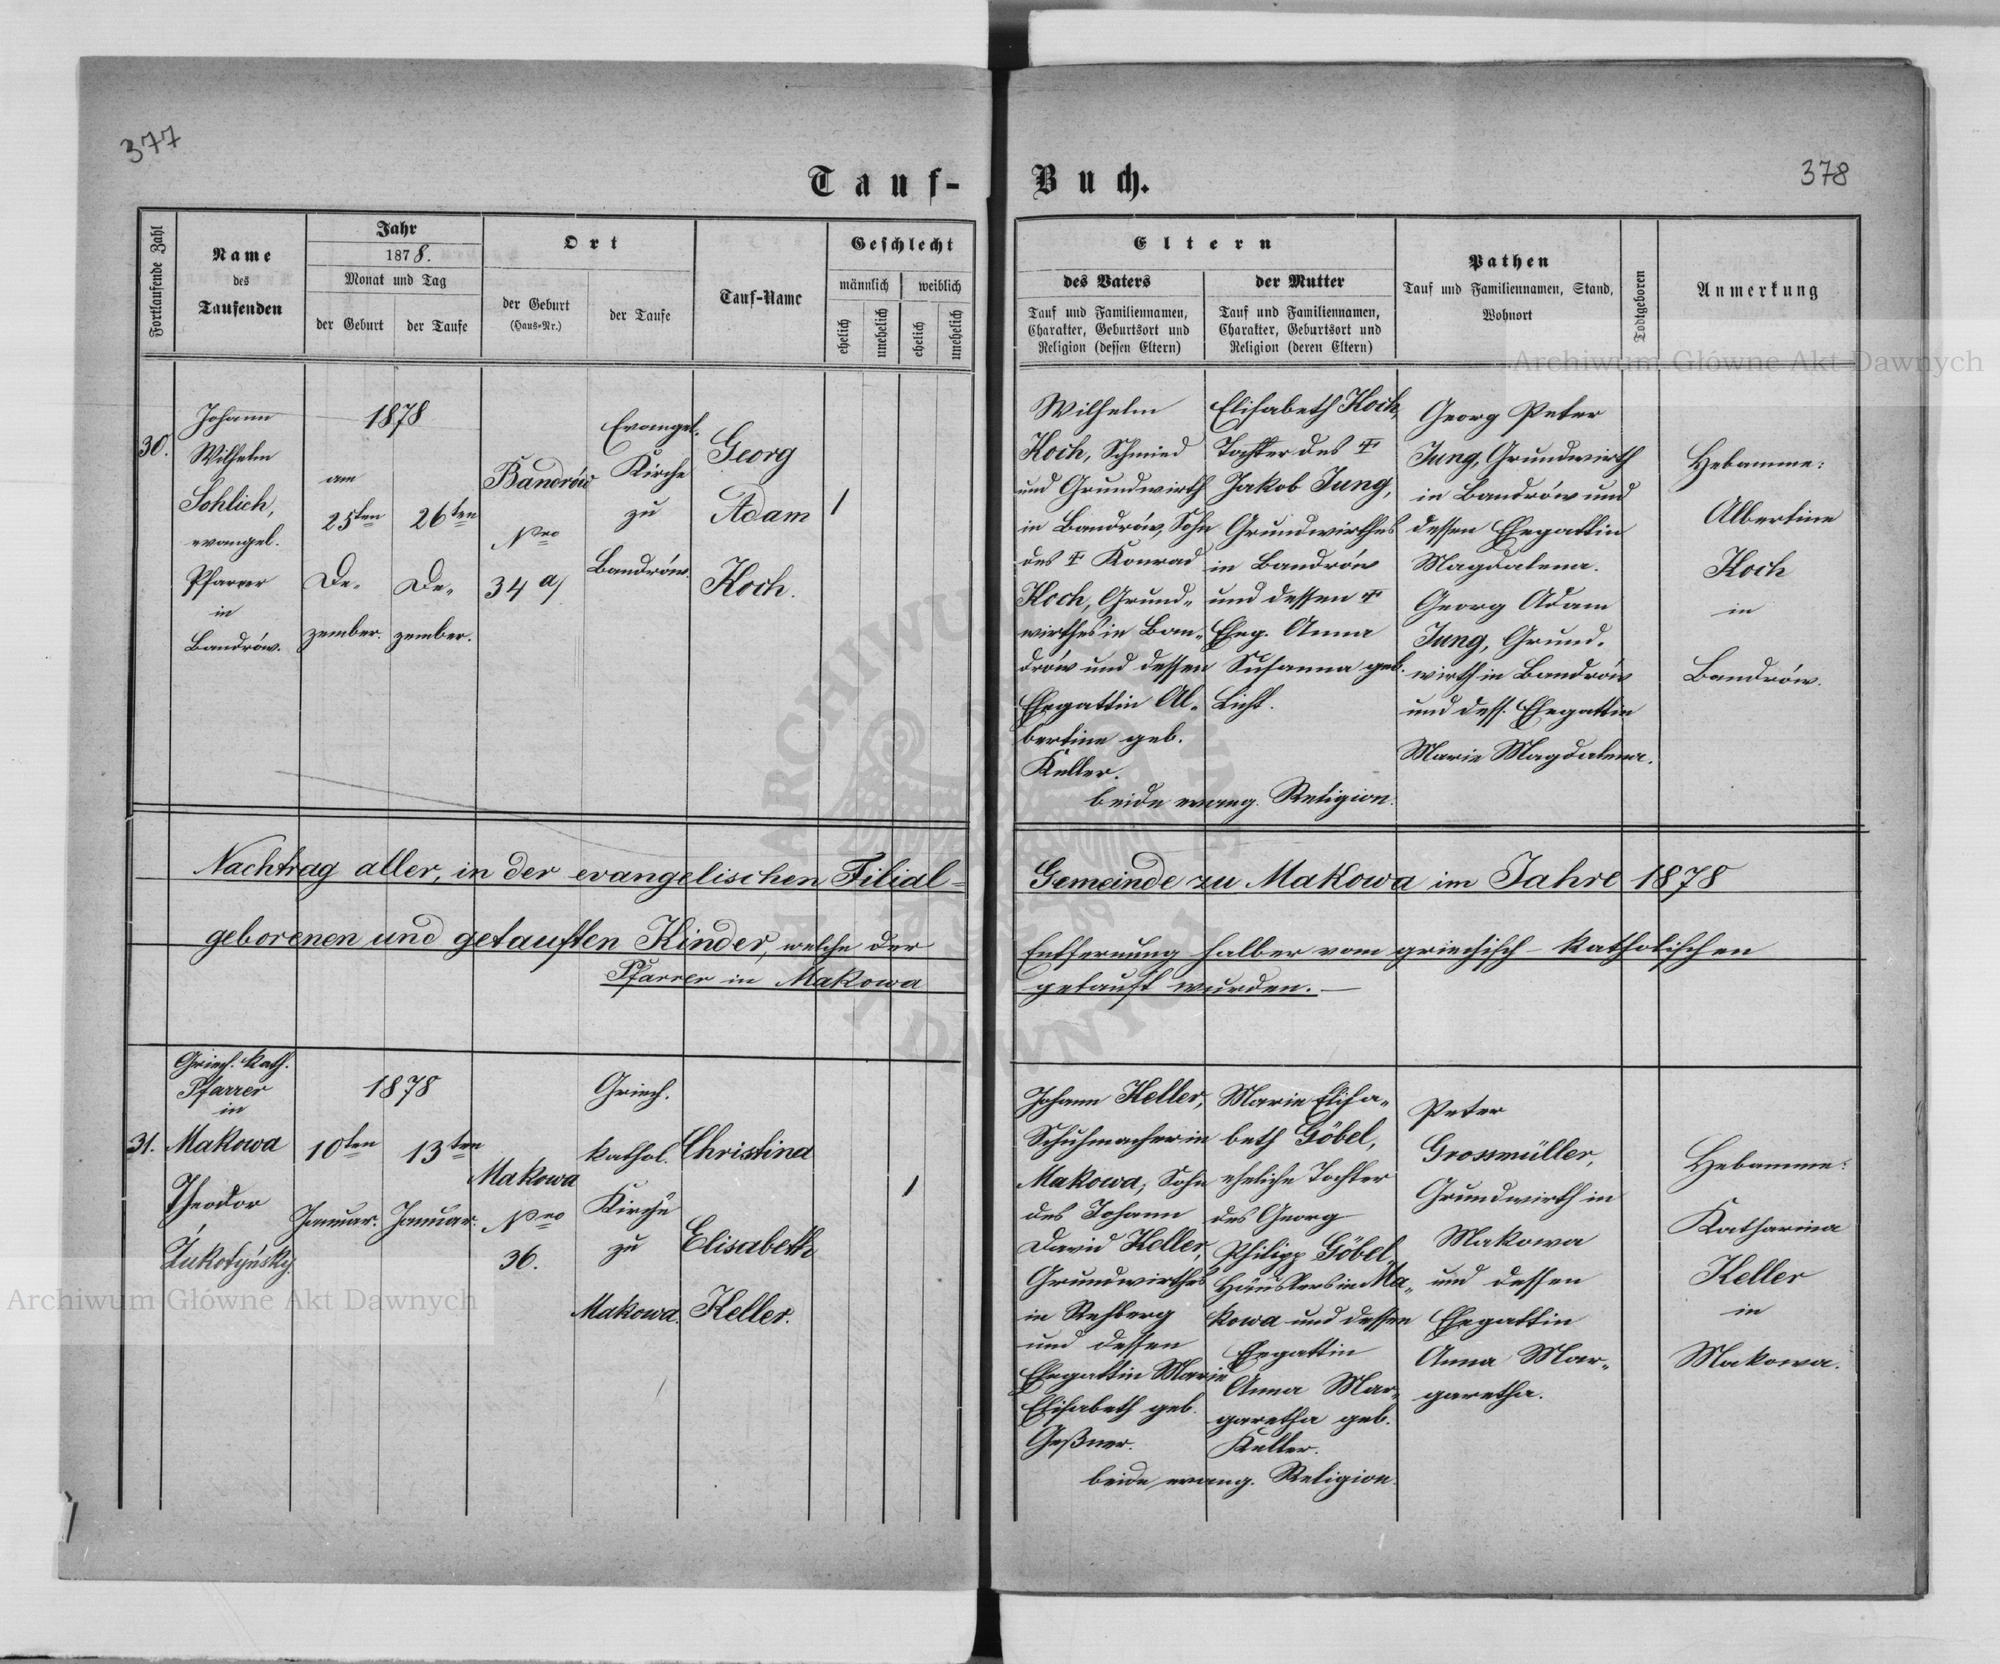 377
378
Tauf-
Buch.
Fortlaufende Zahl
Name
des
Taufenden
Jahr
1878.
Monat und Tag
der Geburt
der Taufe
Ort
der Geburt
(Haus-Nr.)
der Taufe
Tauf-Name
Geschlecht
männlich
weiblich
ehelich
unehelich
ehelich
unehelich
Eltern
des Vaters
der Mutter
Tauf und Familiennamen,
Charakter, Geburtsort und
Religion (dessen Eltern)
Tauf und Familiennamen,
Charakter, Geburtsort und
Religion (deren Eltern)
Pathen
Tauf und Familiennamen, Stand,
Wohnort
Todtgeboren
Anmerkung
30.
Johann
Wilhelm
Sohlich,
evangel.
Pfarrer
in
Bandrów.
1878
am
25ten
De-
zember.
26ten
De-
zember.
Bandrów
Nro
34 a/
Evangel.
Kirche
zu
Bandrów.
Georg
Adam
Koch.
1
Wilhelm
Koch, Schmied
und Grundwirth
in Bandrów, Sohn
des ✝ Konrad
Koch, Grund-
wirthes in Ban-
drów und dessen
Ehegattin Al-
bertine geb.
Keller.
Elisabeth Koch,
Tochter des ✝
Jakob Jung,
Grundwirthes
in Bandrów
und dessen ✝
Eheg. Anna
Susanna geb.
Licht.
beide evang. Religion.
Georg Peter
Jung, Grundwirth
in Bandrów und
dessen Ehegattin
Magdalena.
Georg Adam
Jung, Grund-
wirth in Bandrów
und dess. Ehegattin
Marie Magdalena.
Hebamme:
Albertine
Koch
in
Bandrów.
Nachtrag aller, in der evangelischen Filial-
Gemeinde zu Makowa im Jahre 1878
geborenen und getauften Kinder, welche der
Entfernung halber vom griechisch-katholischen
Pfarrer in Makowa
getauft wurden.—
31.
Griech. kath.
Pfarrer
in
Makowa
Theodor
Żukotyńsky.
1878
10ten
Januar.
13ten
Januar.
Makowa
Nro
36.
Griech.
kathol.
Kirche
zu
Makowa.
Christina
Elisabeth
Keller.
1
Johann Keller,
Schuhmacher in
Makowa, Sohn
des Johann
David Keller,
Grundwirthes
in Rehberg
und dessen
Ehegattin Marie
Elisabeth geb.
Geßner.
Marie Elisa-
beth Göbel,
eheliche Tochter
des Georg
Philipp Göbel
Häuslers in Ma-
kowa und dessen
Ehegattin
Anna Mar-
garetha geb.
Keller.
beide evang. Religion.
Peter
Grossmüller,
Grundwirth in
Makowa
und dessen
Ehegattin
Anna Mar-
garetha.
Hebamme:
Katharina
Keller
in
Makowa.
Archiwum Główne Akt Dawnych
Archiwum Główne Akt Dawnych